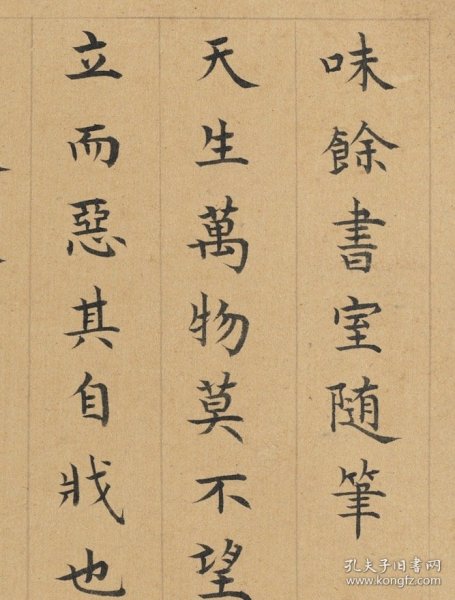 味餘書室随筆
天生萬物莫不望
立而惡其自戕也
孔夫子旧书网
www.kongfz.com